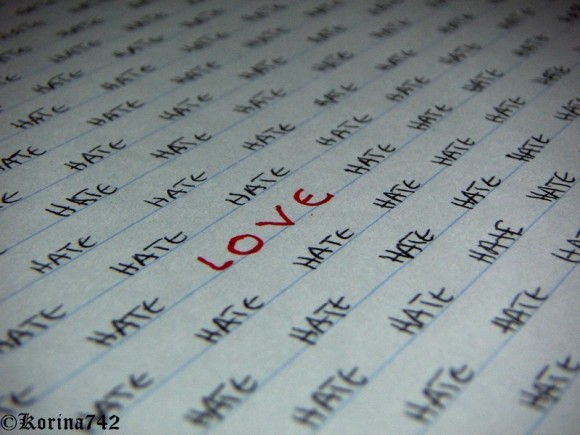 HATE HATE
HATE HATE HATE
HATE HATE HATE
HATE HATE HATE
HATE HATE HATE HATE
HATE HATE HATE HATE HATE
HATE HATE HATE HATE HATE
HATE HATE HATE HATE HATE HATE
HATE HATE HATE HATE HATE HATE
HATE HATE HATE HATE HATE HATE HATE
HATE LOVE HATE HATE HATE HATE
HATE HATE HATE HATE HATE HATE HATE
HATE HATE HATE HATE HATE HATE
HATE HATE HATE HATE
HATE HATE HATE
HATE
©Korina742